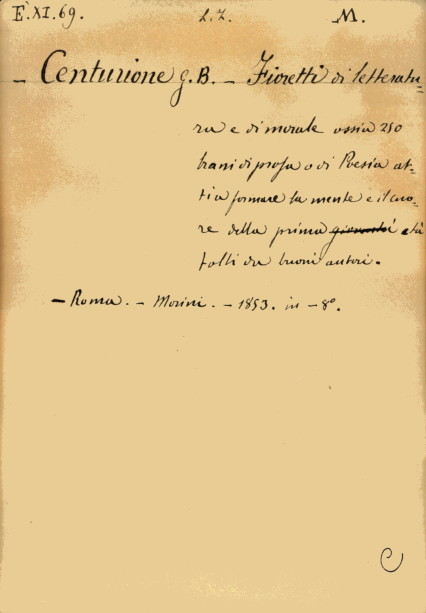 E. XI. 69. L. Z. M.
– Centurione G. B. – Fioretti di letteratu=
ra e di morale ossia 250
brani di prosa o di Poesia at=
ti a formare la mente e il cuo=
re della prima gioventù età
tolti da buoni autori.
– Roma. – Morini. – 1853. in – 8°.
C